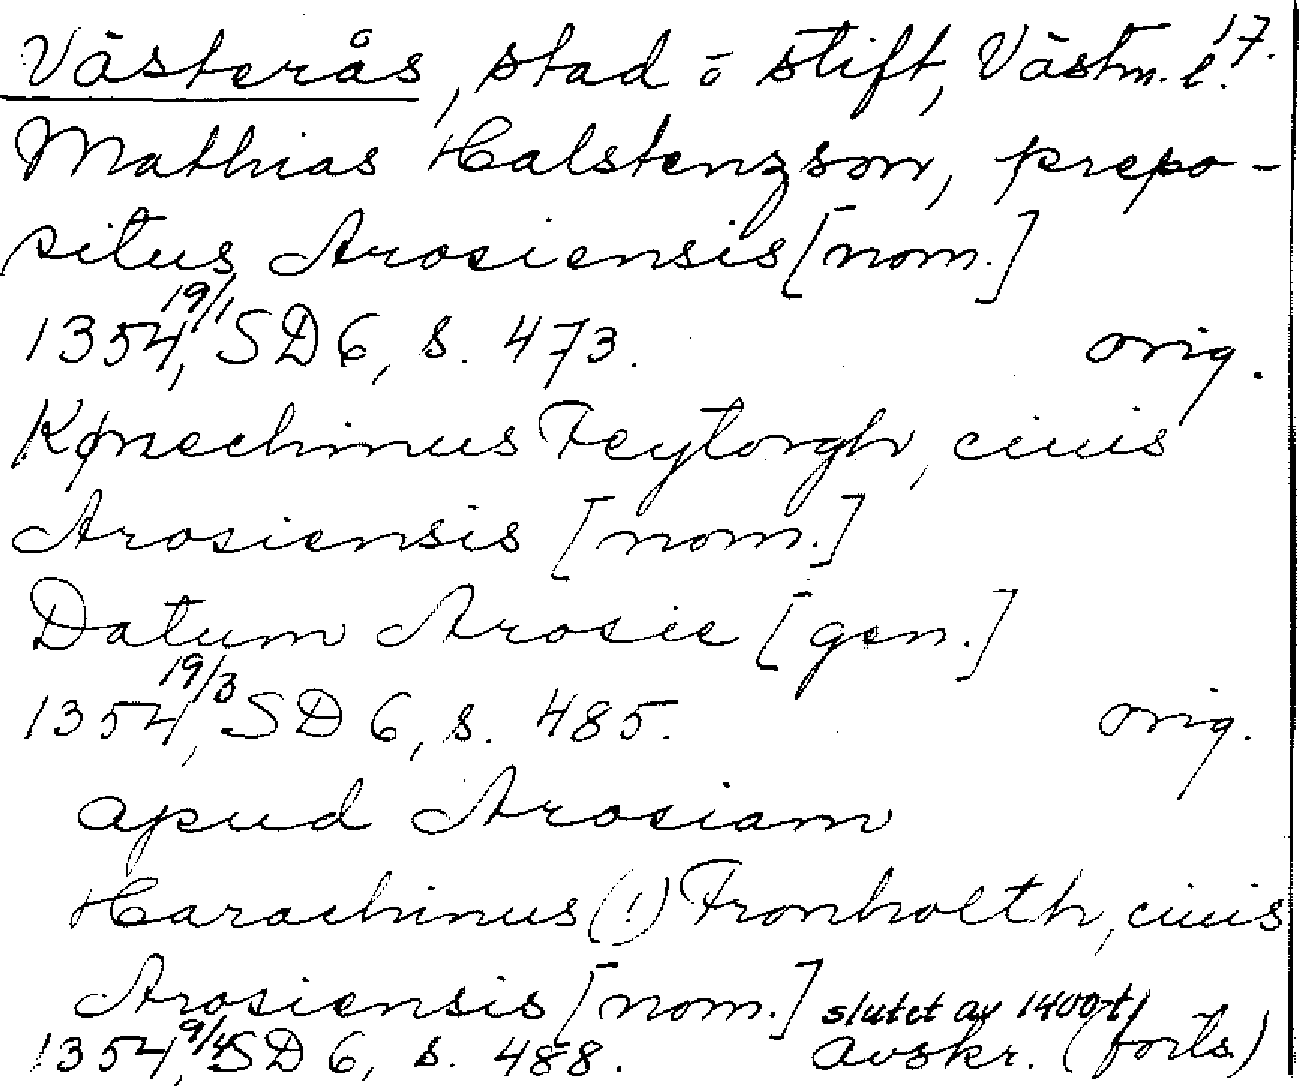 Västerås, stad o stift, Västm. l. 17.
Mathias Halstenzson, prepo-
situs Arosiensis [nom.]
1354 19/1, SD 6, s. 473. orig.
Kønechinus Feytorgh, ciuis
Arosiensis [nom.]
Datum Arosie [gen.]
1354 19/3, SD 6, s. 485. orig.
apud Arosiam
Harachinus (!) Fronholth, ciuis
Arosiensis [nom.] slutet av 1400-t/
1354 9/4, SD 6, s. 488. avskr. (forts.)